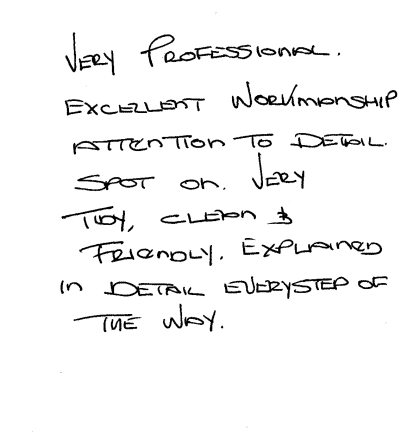 VERY PROFESSIONAL.
EXCELLENT WORKMANSHIP
ATTENTION TO DETAIL.
SPOT ON. VERY
TIDY, CLEAN &
FRIENDLY. EXPLAINED
IN DETAIL EVERYSTEP OF
THE WAY.